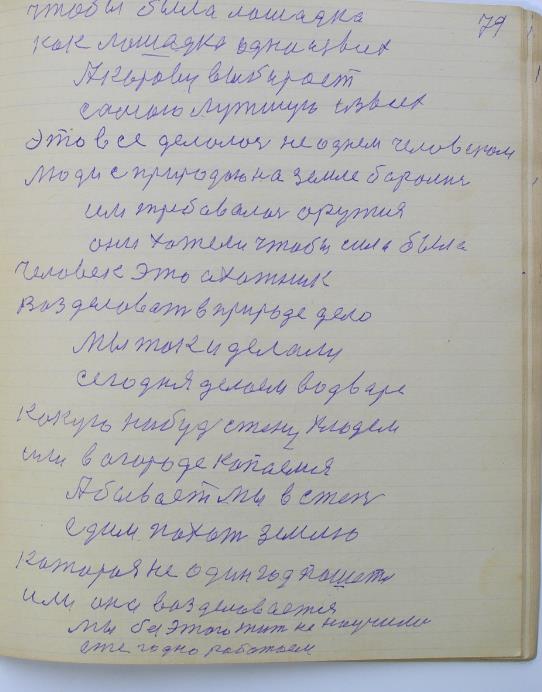 79
чтобы была лошадка
как лошадка одна из всих
А корову выбирает
самою лутшую из всех
Это все делолос не однем человеком
люди с природою на земле боролис
им требовалос оружия
они хотели чтобы сила была
человек это охотник
возделоват в природе дело
мы так и делали
сегодня делаем во дваре
какую небуд стену кладем
или в огороде копаемся
А бывает мы в степ
едим пахат землю
которая не один год пашетс
или она возделовается
мы без этого жит не научилис
ежегодно работаем